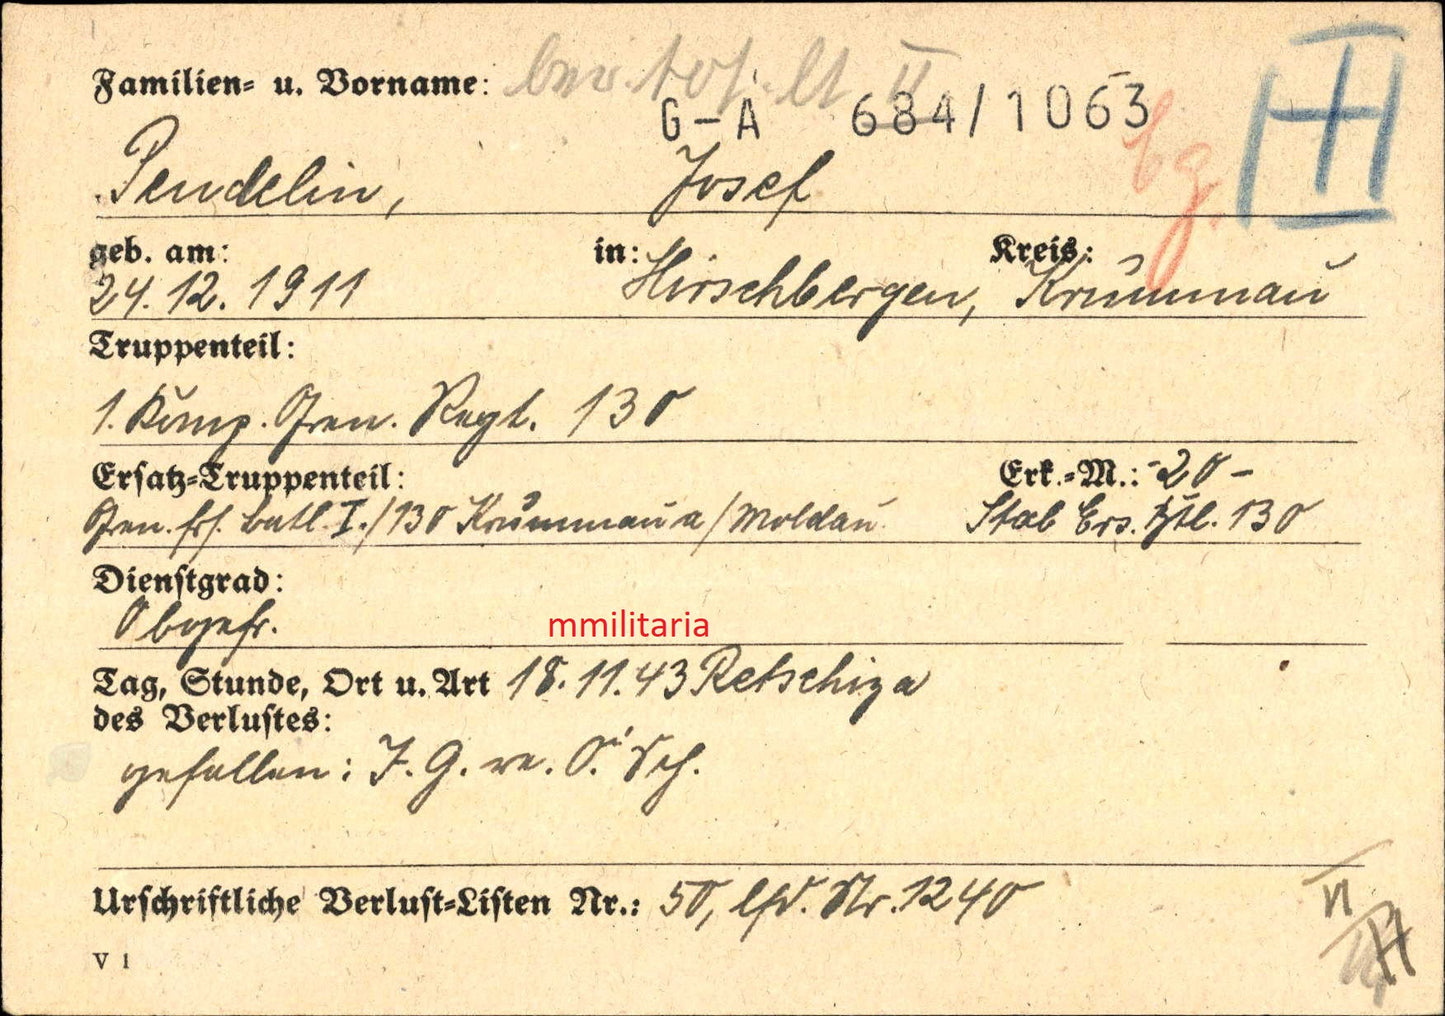 Familien- u. Vorname:
G-A 684/1063
Pendelin, Josef
bg.
III
geb. am: in: Kreis:
24.12.1911 Hirschbergen, Krummau
Truppenteil:
1. Komp. Gren. Regt. 130
Ersatz-Truppenteil: Erk.-M.: -20-
Gren. Ers. Batl. I./130 Krummau a/Moldau Stab Ers. Btl. 130
Dienstgrad:
Obgefr.
mmilitaria
Tag, Stunde, Ort u. Art 18.11.43 Retschiza
des Verlustes:
gefallen: J. G. re. O. Sch.
Urschriftliche Verlust-Listen Nr.: 50, lfd. Nr. 1240
V 1